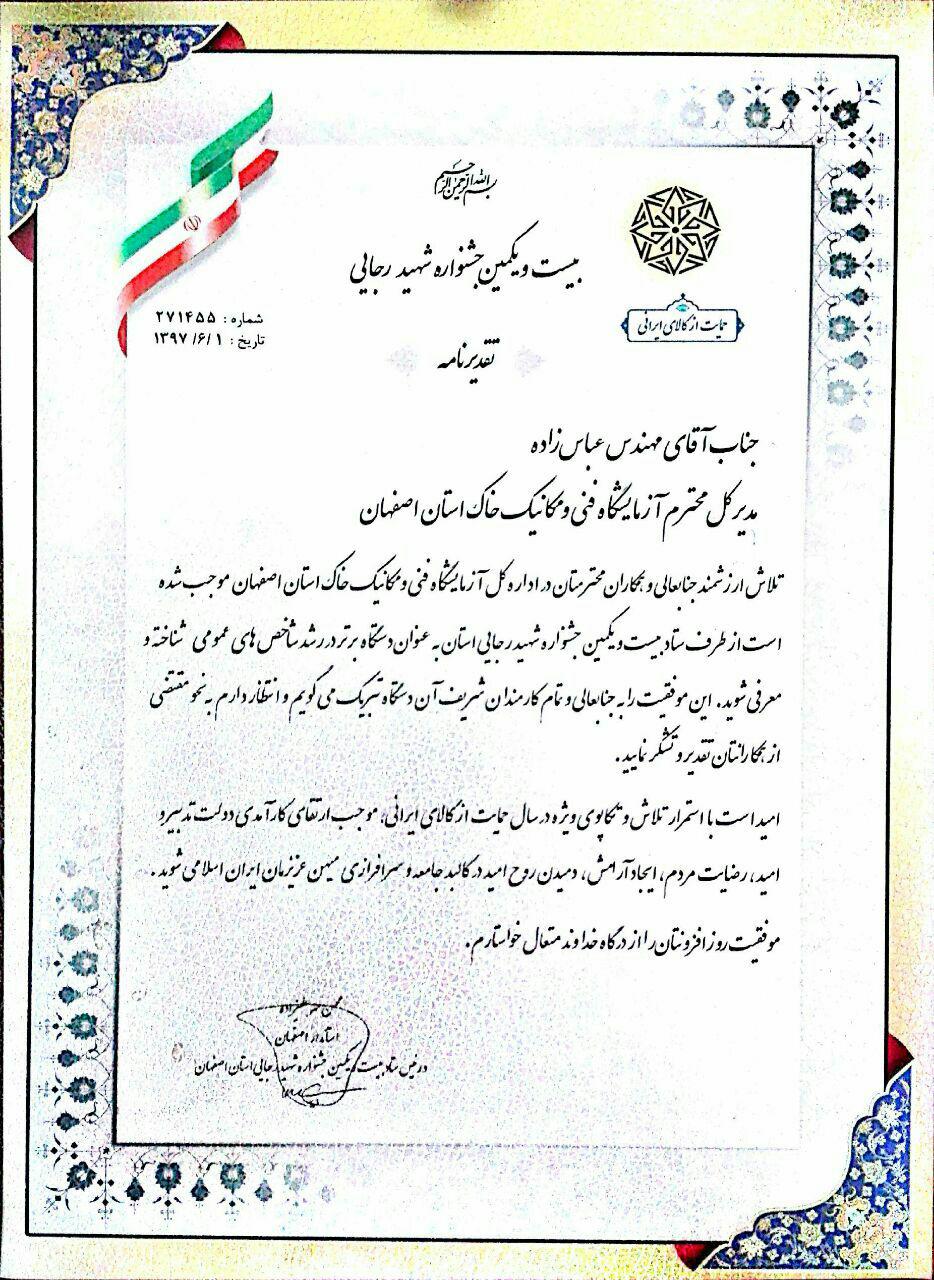 بسم الله الرحمن الرحیم
بیست و یکمین جشنواره شهید رجایی
حمایت از کالای ایرانی
شماره : ۲۷۱۴۵۵
تاریخ : ۱۳۹۷/۶/۱
تقدیرنامه
جناب آقای مهندس عباس زاده
مدیر کل محترم آزمایشگاه فنی و مکانیک خاک استان اصفهان
تلاش ارزشمند جنابعالی و همکاران محترمتان در اداره کل آزمایشگاه فنی و مکانیک خاک استان اصفهان موجب شده
است از طرف ستاد بیست و یکمین جشنواره شهید رجایی استان به عنوان دستگاه برتر در رشد شاخص های عمومی شناخته و
معرفی شوید. این موفقیت را به جنابعالی و تمام کارمندان شریف آن دستگاه تبریک می گویم و انتظار دارم به نحو مقتضی
از همکارانتان تقدیر و تشکر نمایید.
امید است با استمرار تلاش و تکاپوی ویژه در سال حمایت از کالای ایرانی، موجب ارتقای کارآمدی دولت تدبیر و
امید، رضایت مردم، ایجاد آرامش، دمیدن روح امید در کالبد جامعه و سرافرازی میهن عزیزمان ایران اسلامی شوید.
موفقیت روز افزونتان را از درگاه خداوند متعال خواستارم.
محسن
استاندار اصفهان
و رئیس ستاد بیست و یکمین جشنواره شهید رجایی استان اصفهان